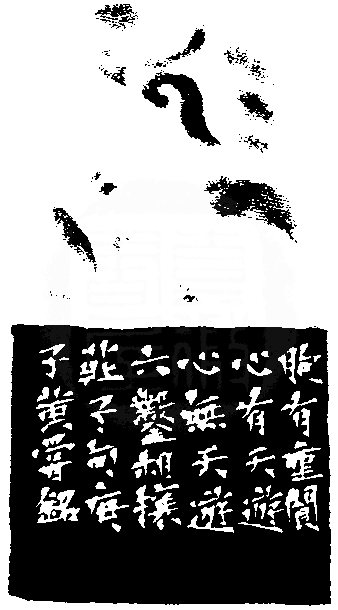 胞有重閬
心有天遊
心無天遊
六鑿相攘
莊子句庚
子黃銘